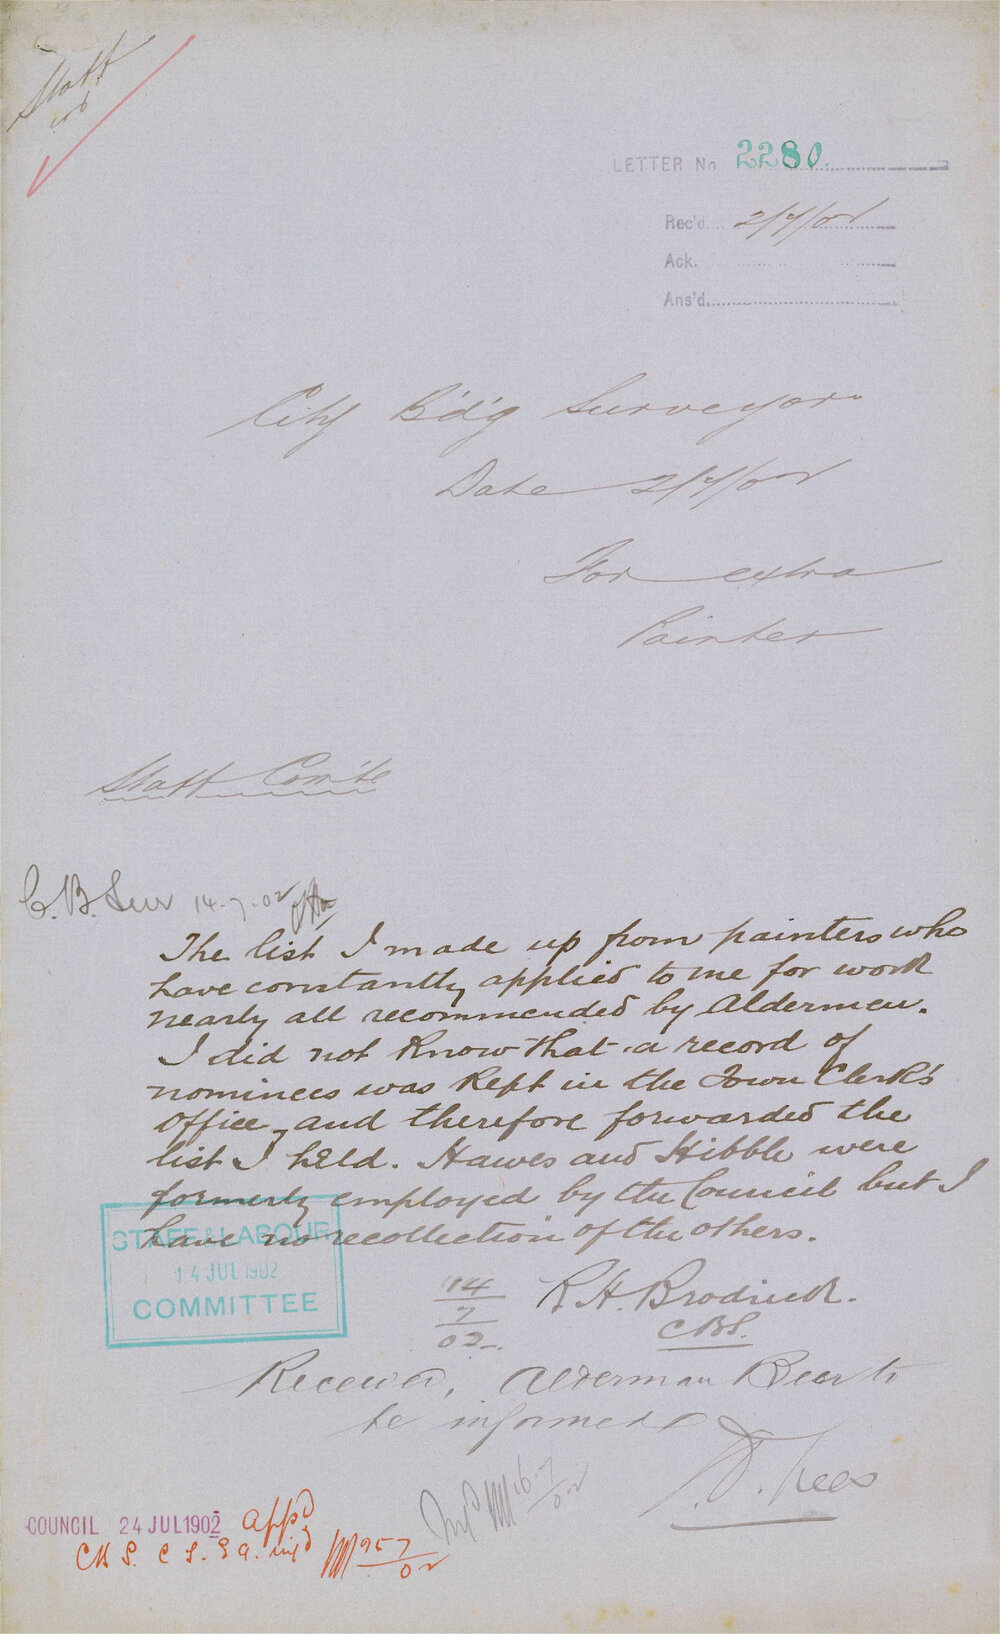 Staff
LETTER No 2280
Rec'd 2/7/02
Ack.
Ans'd
City B'd'g Surveyor
Date 2/7/02
For extra
Painter
Staff Com'te
C.B. Sur 14-7-02
The list I made up from painters who
have constantly applied to me for work
nearly all recommended by Aldermen.
I did not know that a record of
nominees was kept in the Town Clerk's
Office, and therefore forwarded the
list I held. Hawes and Hibble were
formerly employed by the Council but I
have no recollection of the others.
14/7/02
R H. Brodrick.
CBS.
STAFF & LABOUR
14 JUL 1902
COMMITTEE
Received, Alderman Bear to
be informed
Inf'd 16-7/02
COUNCIL 24 JUL 1902 app'd
CBS. C S. inf'd 25 7/02